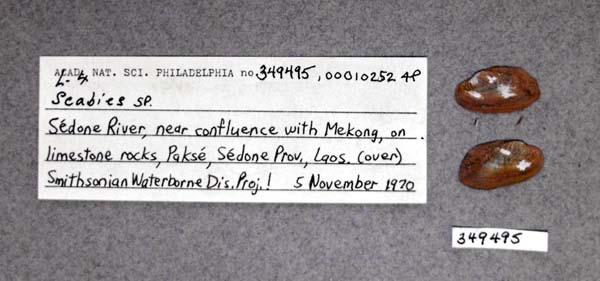 ACAD. NAT. SCI. PHILADELPHIA no. 349495, 00010252 4P
L-4
Scabies sp.
Sédone River, near confluence with Mekong, on
limestone rocks, Paksé, Sédone Prov., Laos. (over)
Smithsonian Waterborne Dis. Proj.! 5 November 1970
349495